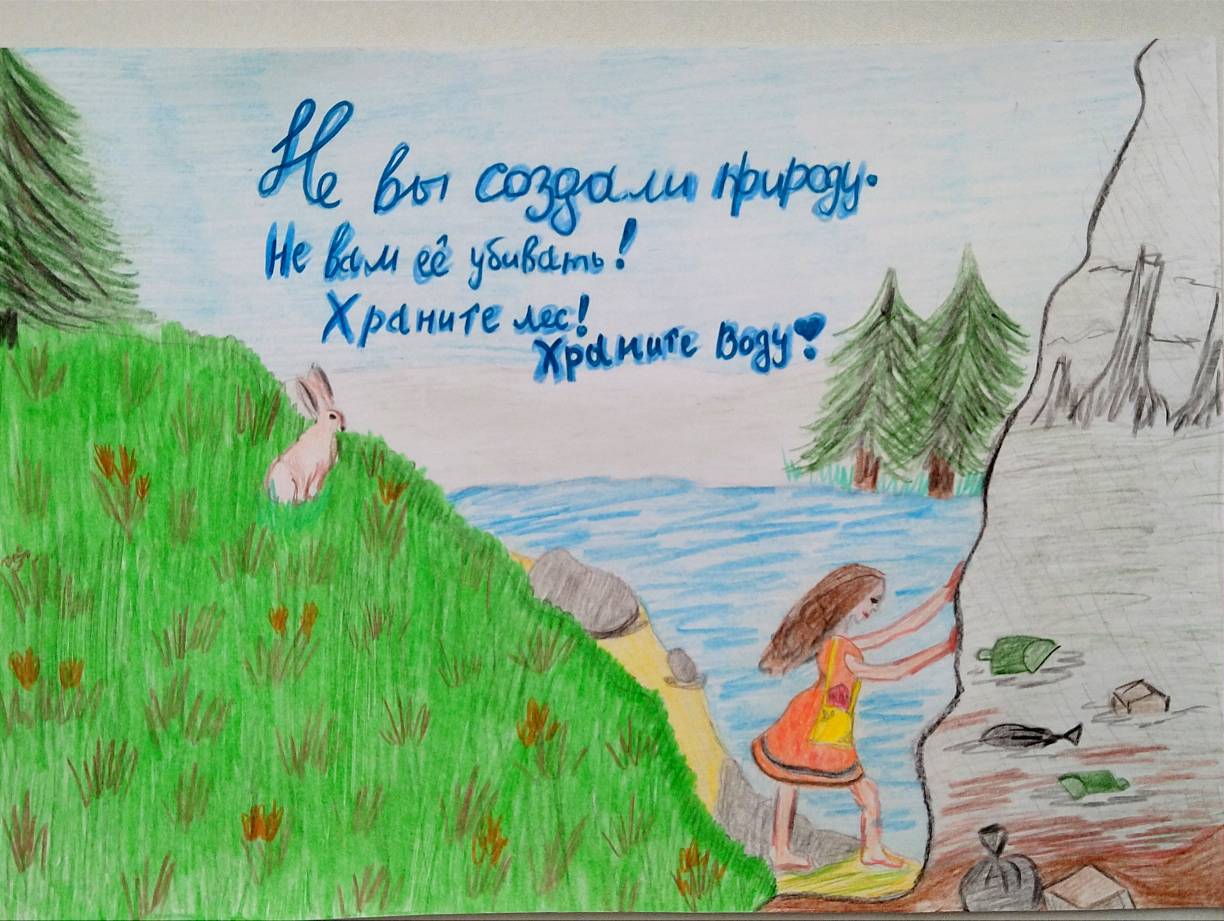 Не вы создали природу.
Не вам её убивать!
Храните лес!
Храните воду!